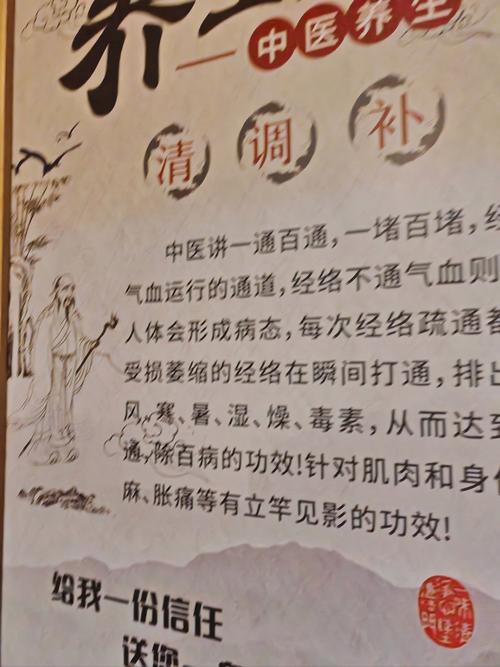 养生
中医养生
清 调 补
中医讲一通百通,一堵百堵,经
气血运行的通道,经络不通气血则
人体会形成病态,每次经络疏通都
受损萎缩的经络在瞬间打通,排出
风、寒、暑、湿、燥、毒素,从而达到
通,除百病的功效!针对肌肉和身体
麻、胀痛等有立竿见影的功效!
给我一份信任
送您一